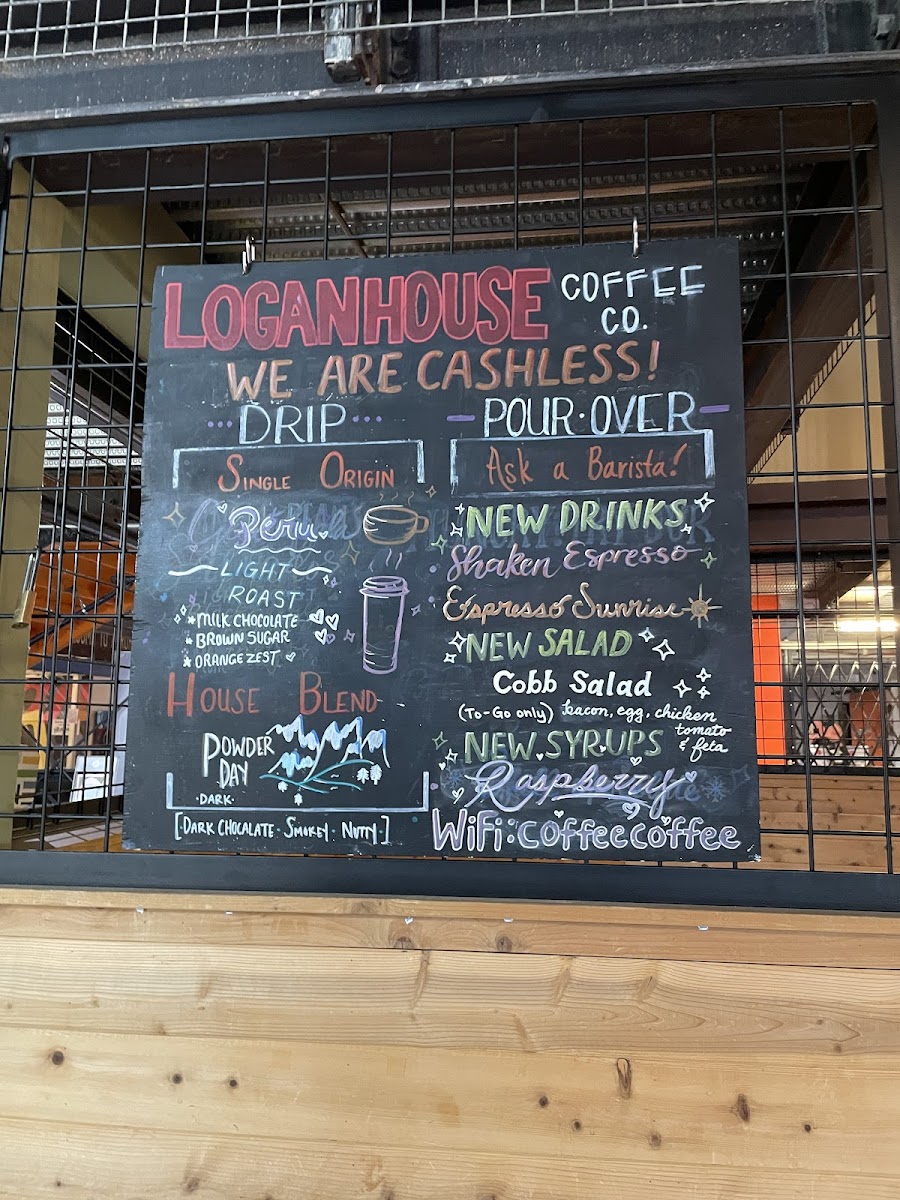 LOGANHOUSE COFFEE CO.
WE ARE CASHLESS!
DRIP
SINGLE ORIGIN
Peru
LIGHT
ROAST
*MILK CHOCOLATE
*BROWN SUGAR
*ORANGE ZEST
HOUSE BLEND
POWDER
DAY
·DARK·
[·DARK CHOCALATE · SMOKEY · NUTTY·]
POUR·OVER
Ask a Barista!
NEW DRINKS
Shaken Espresso
Espresso Sunrise
NEW SALAD
Cobb Salad
(To-Go only) bacon, egg, chicken
tomato
& feta
NEW SYRUPS
Raspberry
WiFi:coffeecoffee